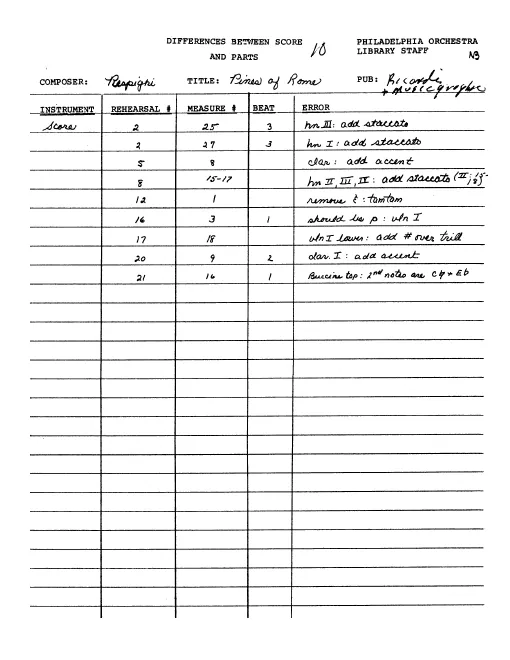 DIFFERENCES BETWEEN SCORE
AND PARTS
10
PHILADELPHIA ORCHESTRA
LIBRARY STAFF
NB
COMPOSER: Respighi TITLE: Pines of Rome PUB: Ricordi
+ Musicgraphic
INSTRUMENT REHEARSAL # MEASURE # BEAT ERROR
Score 2 25 3 hn III: add staccato
2 27 3 hn I: add staccato
5 8 clar: add accent
8 15-17 hn II, III, IV: add staccato
12 1 remove : tomtom
16 3 1 should be p: vln I
17 18 vln I lower: add # over trill
20 9 2 clar. I: add accent
21 16 1 Buccine top: 2nd notes are C♮ + Eb